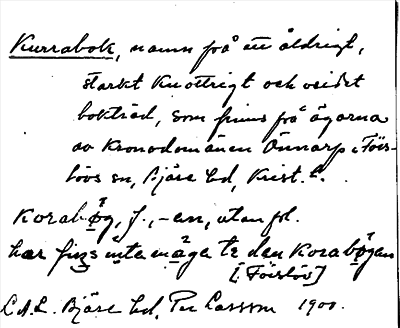 Kurrabok, namn på ett åldrigt,
starkt knottrigt och vridet
bokträd, som finns på ägorna
av Kronodomänen Önnarp i Förs-
lövs sn, Bjäre hd, Krist. l.
Korabǿg, f., -en, utan pl.
har finns inte måga te den Korabǿgen
[Förslöv]
L.A.L. Bjäre hd, Per Larsson 1900.